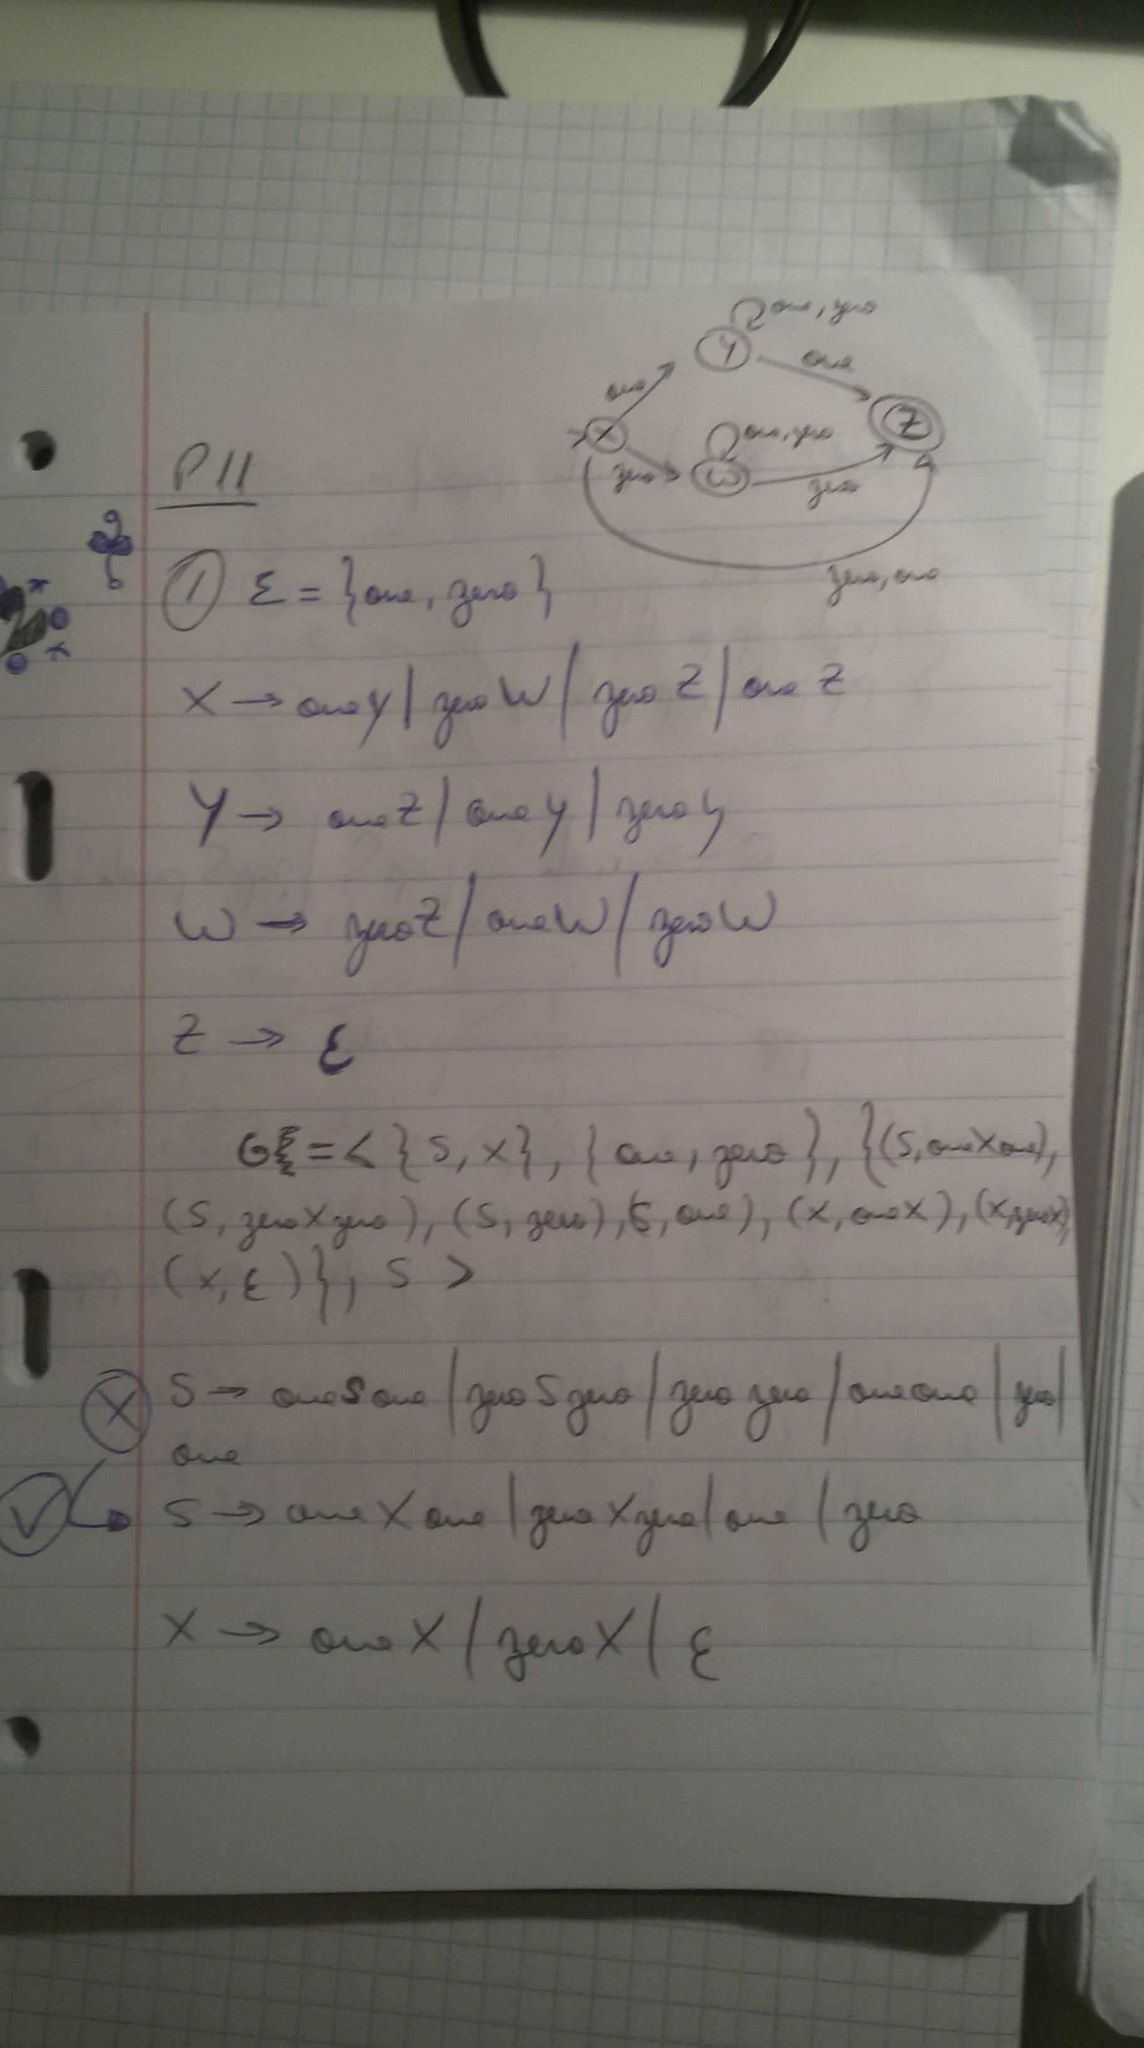 one, zero
Y
one
one
X
one, zero
Z
zero
W
zero
zero, one
P11
① Σ = {one, zero}
X → one Y | zero W | zero Z | one Z
Y → one Z | one Y | zero Y
W → zero Z | one W | zero W
Z → ε
G = < {S, X}, {one, zero}, {(S, one X one),
(S, zero X zero), (S, zero), (S, one), (X, one X), (X, zero X),
(X, ε)}, S >
X S → one S one | zero S zero | zero zero | one one | zero |
one
V S → one X one | zero X zero | one | zero
X → one X | zero X | ε